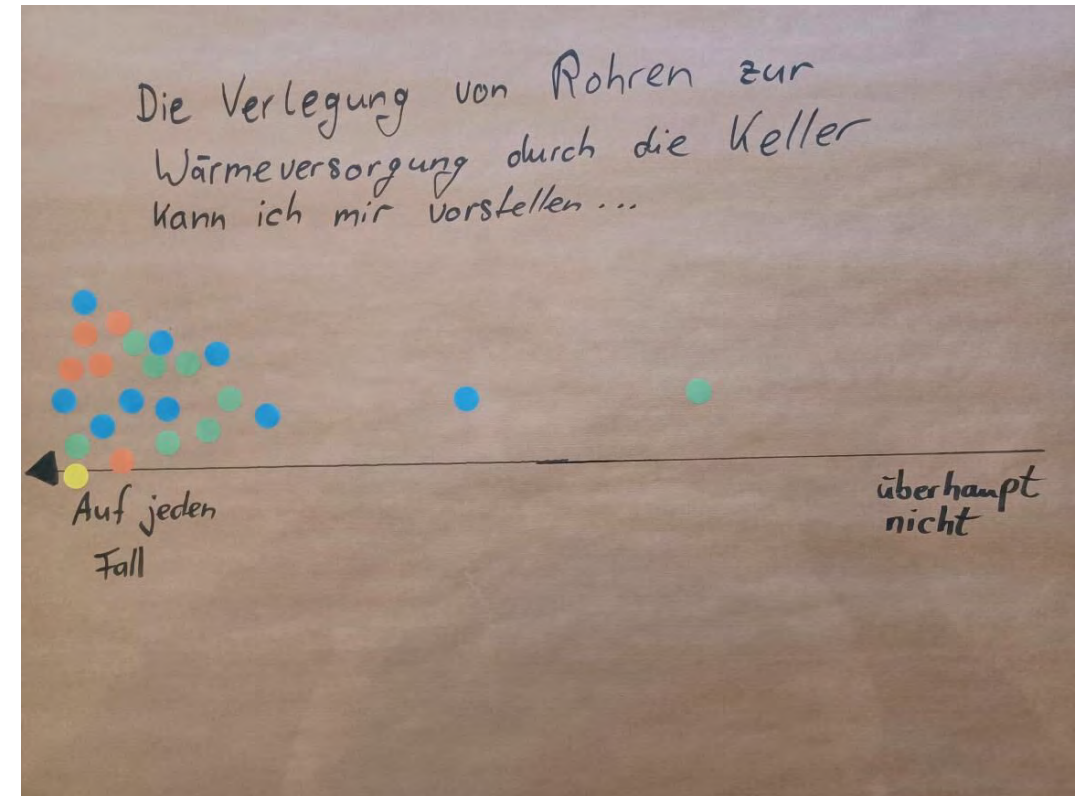 Die Verlegung von Rohren zur
Wärmeversorgung durch die Keller
kann ich mir vorstellen...
Auf jeden
Fall
überhaupt
nicht